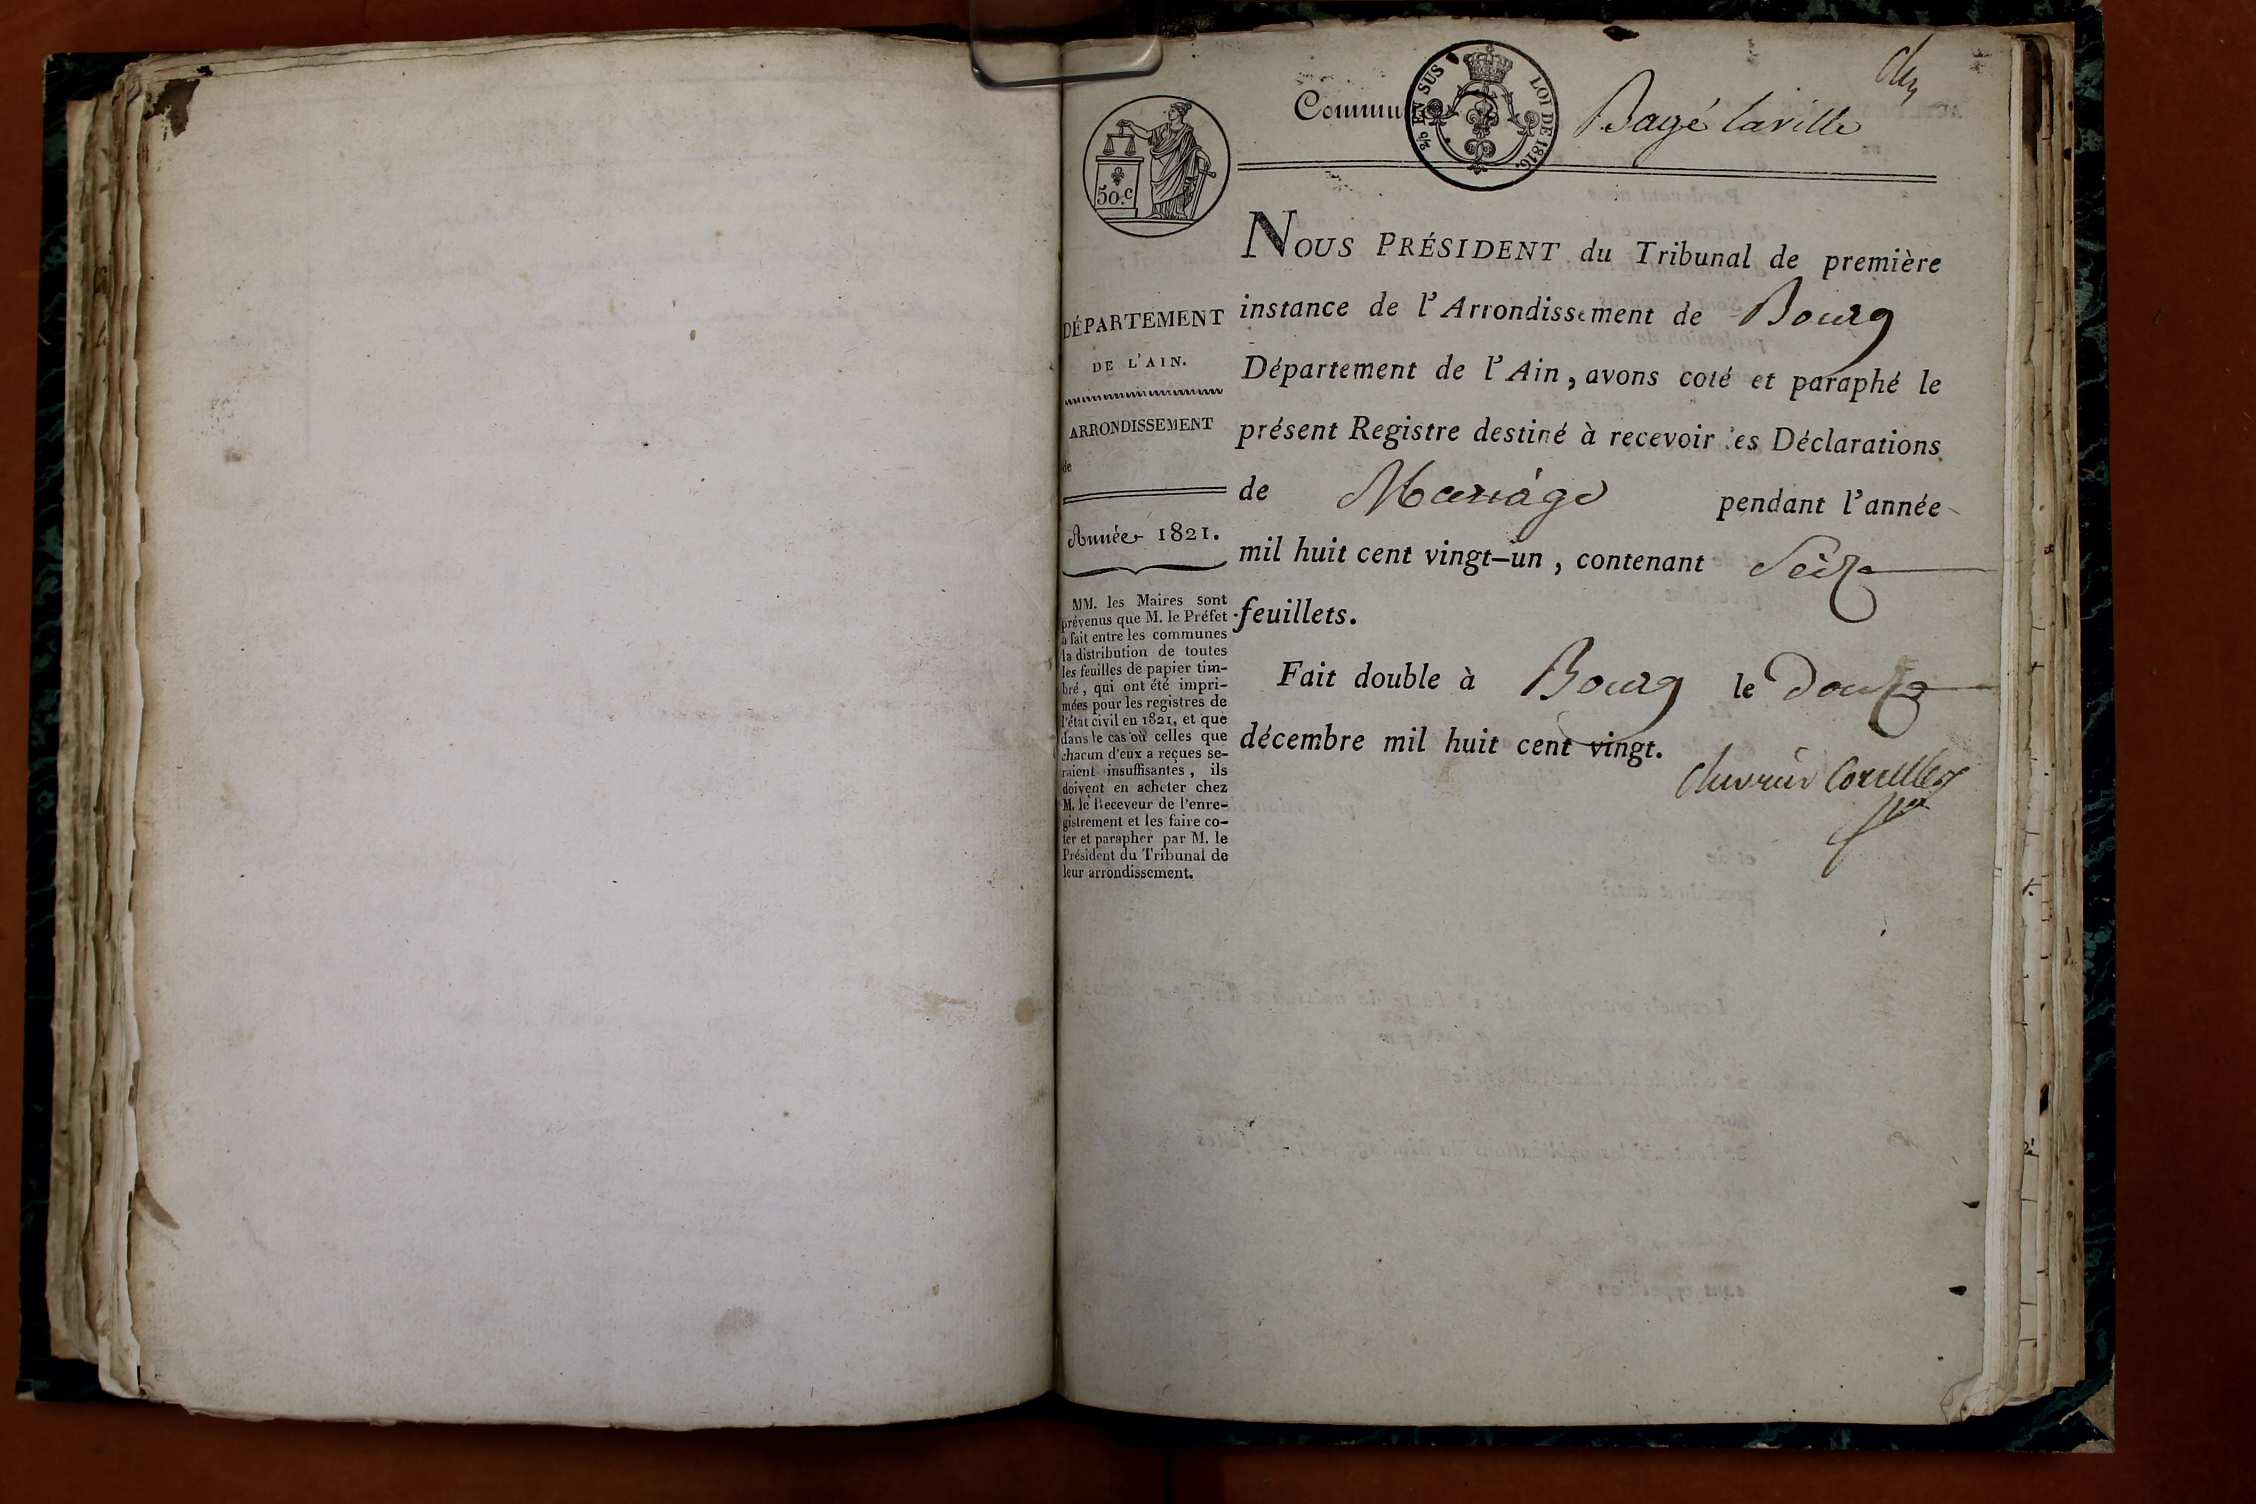 Commu
2/10 EN SUS LOI DE 1816.
Bagé laville
50.c
NOUS PRÉSIDENT du Tribunal de première
instance de l'Arrondissement de Bourg
Département de l'Ain, avons coté et paraphé le
présent Registre destiné à recevoir les Déclarations
de Mariage pendant l'année
mil huit cent vingt-un, contenant Seize
feuillets.
Fait double à Bourg le Douze
décembre mil huit cent vingt.
DÉPARTEMENT
DE L'AIN.
ARRONDISSEMENT
de
Année 1821.
MM. les Maires sont
prévenus que M. le Préfet
a fait entre les communes
la distribution de toutes
les feuilles de papier tim-
bré, qui ont été impri-
mées pour les registres de
l'état civil en 1821, et que
dans le cas où celles que
chacun d'eux a reçues se-
raient insuffisantes, ils
doivent en acheter chez
M. le Receveur de l'enre-
gistrement et les faire co-
ter et parapher par M. le
Président du Tribunal de
leur arrondissement.